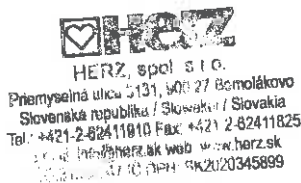 Herz
HERZ, spol. s r.o.
Priemyselná ulica 5131, 900 27 Bernolákovo
Slovenská republika / Slowakei / Slovakia
Tel.: +421-2-62411910 Fax: +421 2-62411825
info@herz.sk web www.herz.sk
DPH: SK2020345899